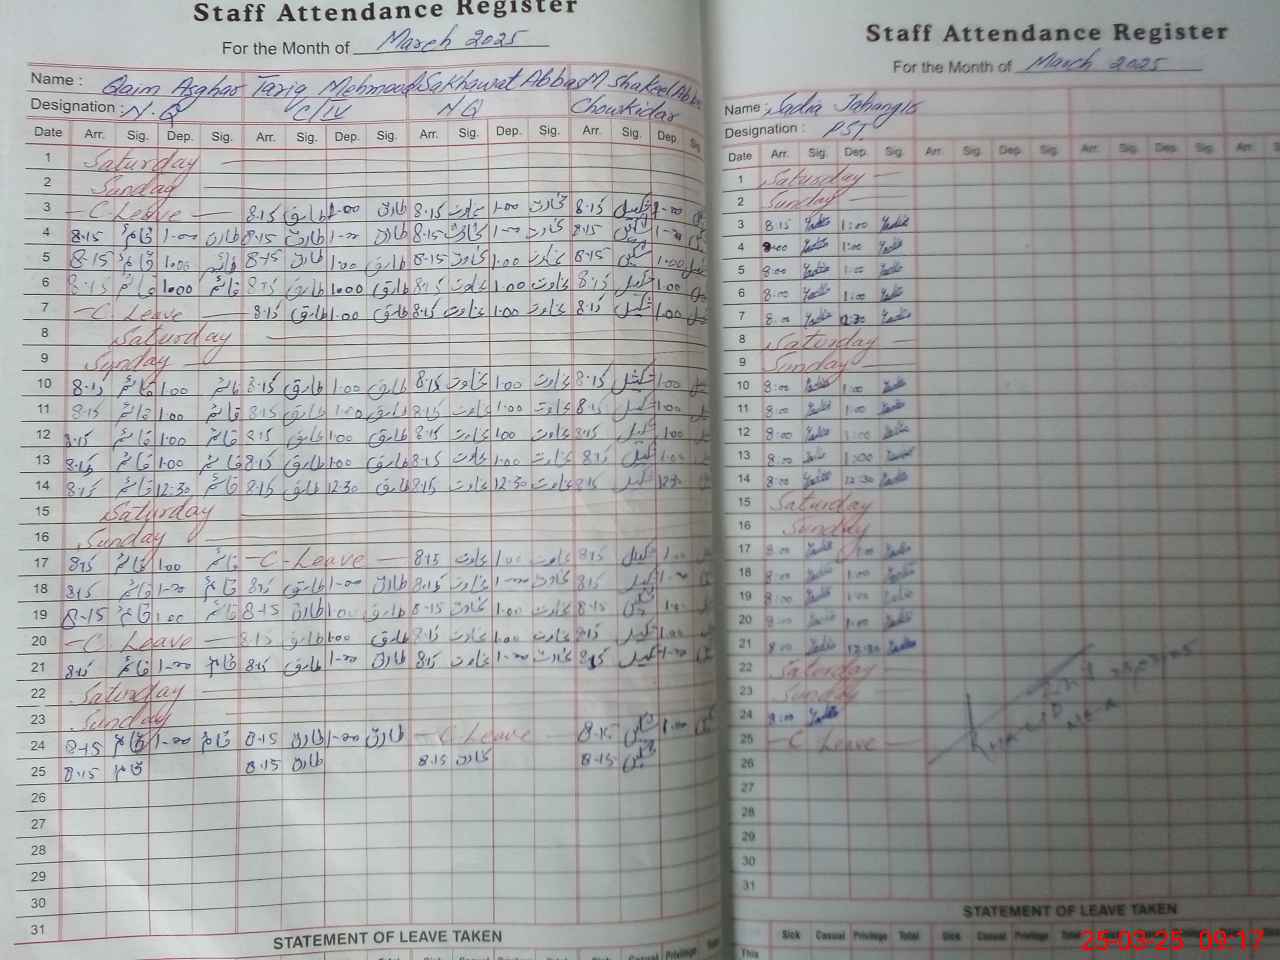 Staff Attendance Register
For the Month of March 2025
Name : Qaim Asghar Tariq Mehmood Sakhawat Abbas M Shakeel Abbas
Designation : N.Q C/IV N Q Chowkidar
Date Arr. Sig. Dep. Sig. Arr. Sig. Dep. Sig. Arr. Sig. Dep. Sig. Arr. Sig. Dep. Sig
1 Saturday
2 Sunday
3 C-Leave 8.15 طارق 1.00 طارق 8.15 سخاوت 1.00 سخاوت 8.15 شکیل 1-00
4 8.15 قائم 1-00 طارق 8.15 طارق 1-00 طارق 8.15 سخاوت 1-00 سخاوت 8.15 شکیل 1-00
5 8.15 قائم 1.00 قائم 8.15 طارق 1.00 طارق 8.15 سخاوت 1.00 سخاوت 8.15 شکیل 1.00
6 8.15 قائم 1.00 قائم 8.15 طارق 1.00 طارق 8.15 سخاوت 1.00 سخاوت 8.15 شکیل 1.00
7 C. Leave 8.15 طارق 1.00 طارق 8.15 سخاوت 1.00 سخاوت 8.15 شکیل 1.00
8 Saturday
9 Sunday
10 8.15 قائم 1.00 قائم 8.15 طارق 1.00 طارق 8.15 سخاوت 1.00 سخاوت 8.15 شکیل 1.00
11 8.15 قائم 1.00 قائم 8.15 طارق 1.00 طارق 8.15 سخاوت 1.00 سخاوت 8.15 شکیل 1.00
12 8.15 قائم 1.00 قائم 8.15 طارق 1.00 طارق 8.15 سخاوت 1.00 سخاوت 8.15 شکیل 1.00
13 8.15 قائم 1.00 قائم 8.15 طارق 1.00 طارق 8.15 سخاوت 1.00 سخاوت 8.15 شکیل 1.00
14 8.15 قائم 12.30 قائم 8.15 طارق 12.30 طارق 8.15 سخاوت 12.30 سخاوت 8.15 شکیل 12.30
15 Saturday
16 Sunday
17 8.15 قائم 1.00 قائم C-Leave 8.15 سخاوت 1.00 سخاوت 8.15 شکیل 1.00
18 8.15 قائم 1-00 قائم 8.15 طارق 1-00 طارق 8.15 سخاوت 1-00 سخاوت 8.15 شکیل 1-00
19 8-15 قائم 1.00 قائم 8-15 طارق 1.00 طارق 8-15 سخاوت 1.00 سخاوت 8-15 شکیل 1.00
20 C. Leave 8.15 طارق 1.00 طارق 8.15 سخاوت 1.00 سخاوت 8.15 شکیل 1.00
21 8.15 قائم 1-00 قائم 8.15 طارق 1-00 طارق 8.15 سخاوت 1-00 سخاوت 8.15 شکیل 1-00
22 Saturday
23 Sunday
24 8-15 قائم 1-00 قائم 8.15 طارق 1-00 طارق C Leave 8.15 شکیل 1.00
25 8.15 قائم 8.15 طارق 8.15 سخاوت 8.15 شکیل
26
27
28
29
30
31
STATEMENT OF LEAVE TAKEN
Staff Attendance Register
For the Month of March 2025
Name : Sadia Jahangir
Designation : PST
Date Arr. Sig. Dep. Sig. Arr. Sig. Dep. Sig. Arr. Sig. Dep. Sig. Arr.
1 Saturday
2 Sunday
3 8:15 Sadia 1:00 Sadia
4 8:00 Sadia 1:00 Sadia
5 8:00 Sadia 1:00 Sadia
6 8:00 Sadia 1:00 Sadia
7 8:00 Sadia 12:30 Sadia
8 Saturday
9 Sunday
10 8:00 Sadia 1:00 Sadia
11 8:00 Sadia 1:00 Sadia
12 8:00 Sadia 1:00 Sadia
13 8:00 Sadia 1:00 Sadia
14 8:00 Sadia 12:30 Sadia
15 Saturday
16 Sunday
17 8:00 Sadia 1:00 Sadia
18 8:00 Sadia 1:00 Sadia
19 8:00 Sadia 1:00 Sadia
20 8:00 Sadia 1:00 Sadia
21 8:00 Sadia 12:30 Sadia
22 Saturday
23 Sunday
24 8:00 Sadia
25 C Leave
26
27
28
29
30
31
STATEMENT OF LEAVE TAKEN
Sick Casual Privilege Total Sick Casual Privilege
This
25-03-25 09:17